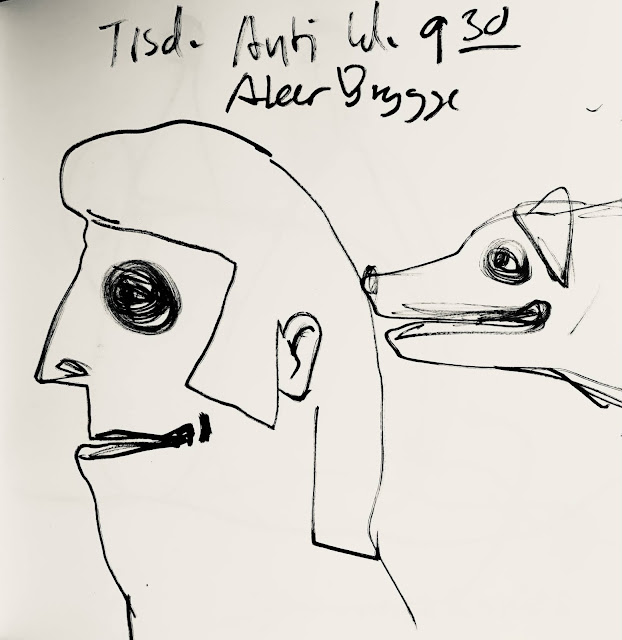 Tisd. Anti kl. 9 30
Aker Brygge